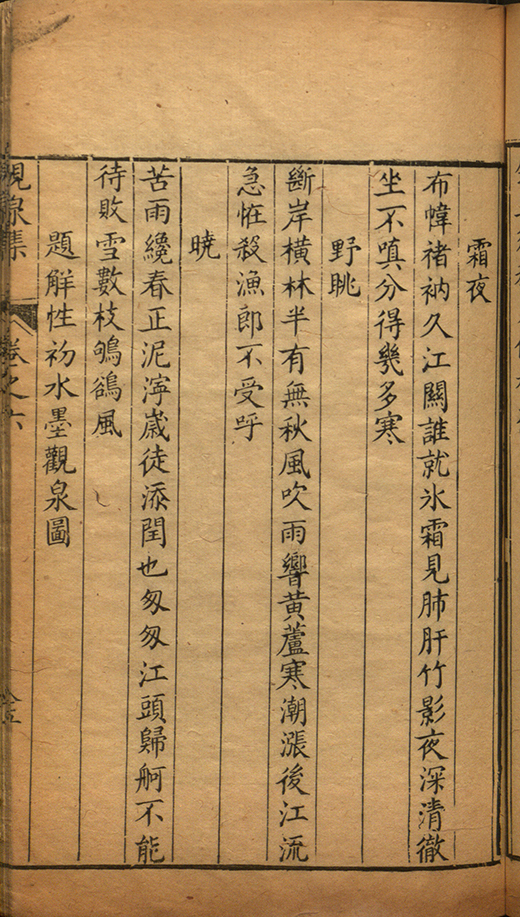 霜夜
布幃褚衲久江關誰就氷霜見肺肝竹影夜深清徹
坐不嗔分得幾多寒
野眺
斷岸橫林半有無秋風吹雨響黃蘆寒潮漲後江流
急恠殺漁郎不受呼
曉
苦雨纔春正泥濘歲徒添閏也匆匆江頭歸舸不能
待敗雪數枝鳹鶺風
題解性初水墨觀泉圖
集
卷之六